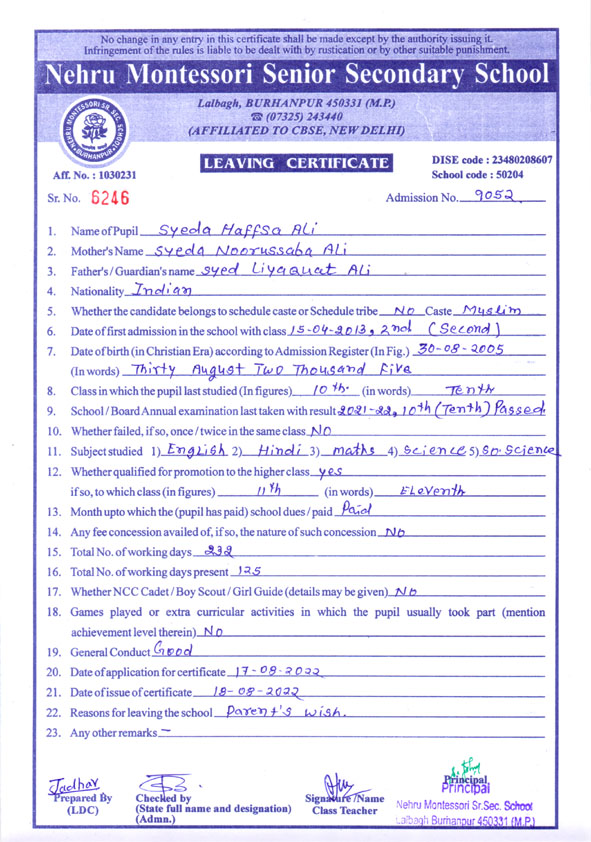 No change in any entry in this certificate shall be made except by the authority issuing it.
Infringement of the rules is liable to be dealt with by rustication or by other suitable punishment.
Nehru Montessori Senior Secondary School
Lalbagh, BURHANPUR 450331 (M.P.)
☎ (07325) 243440
(AFFILIATED TO CBSE, NEW DELHI)
NEHRU MONTESSORI SR. SEC. SCHOOL
BURHANPUR
LEAVING CERTIFICATE
DISE code : 23480208607
Aff. No. : 1030231
School code : 50204
Sr. No. 6246
Admission No. 9052
1. Name of Pupil Syeda Haffsa Ali
2. Mother's Name Syeda Noorussaba Ali
3. Father's / Guardian's name Syed Liyaquat Ali
4. Nationality Indian
5. Whether the candidate belongs to schedule caste or Schedule tribe No Caste Muslim
6. Date of first admission in the school with class 15-04-2013, 2nd (Second)
7. Date of birth (in Christian Era) according to Admission Register (In Fig.) 30-08-2005
(In words) Thirty August Two Thousand Five
8. Class in which the pupil last studied (In figures) 10th. (in words) Tenth
9. School / Board Annual examination last taken with result 2021-22, 10th (Tenth) Passed
10. Whether failed, if so, once / twice in the same class No
11. Subject studied 1) English 2) Hindi 3) maths 4) Science 5) So. Science
12. Whether qualified for promotion to the higher class yes
if so, to which class (in figures) 11th (in words) Eleventh
13. Month upto which the (pupil has paid) school dues / paid Paid
14. Any fee concession availed of, if so, the nature of such concession No
15. Total No. of working days 232
16. Total No. of working days present 125
17. Whether NCC Cadet / Boy Scout / Girl Guide (details may be given) No
18. Games played or extra curricular activities in which the pupil usually took part (mention
achievement level therein) No
19. General Conduct Good
20. Date of application for certificate 17-08-2022
21. Date of issue of certificate 18-08-2022
22. Reasons for leaving the school Parent's wish.
23. Any other remarks —
Jadhav
Prepared By
(LDC)
Checked by
(State full name and designation)
(Admn.)
Signature / Name
Class Teacher
Principal
Principal
Nehru Montessori Sr.Sec. School
Lalbagh Burhanpur 450331 (M.P.)